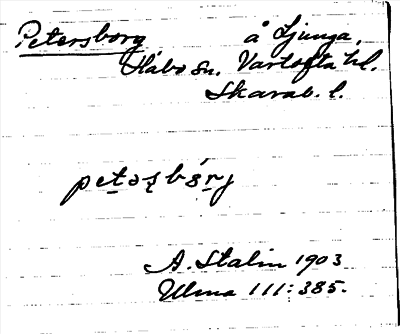 Petersborg å Ljunga,
Håbo sn. Vartofta hd.
Skarab. l.
petəʂbórj
A. Stalin 1903
Ulma 111:385.